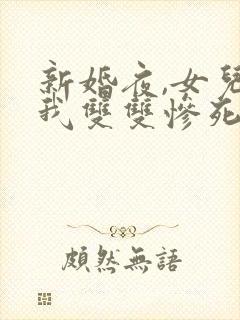 新婚夜,女兒
我雙雙慘死
頗然無語